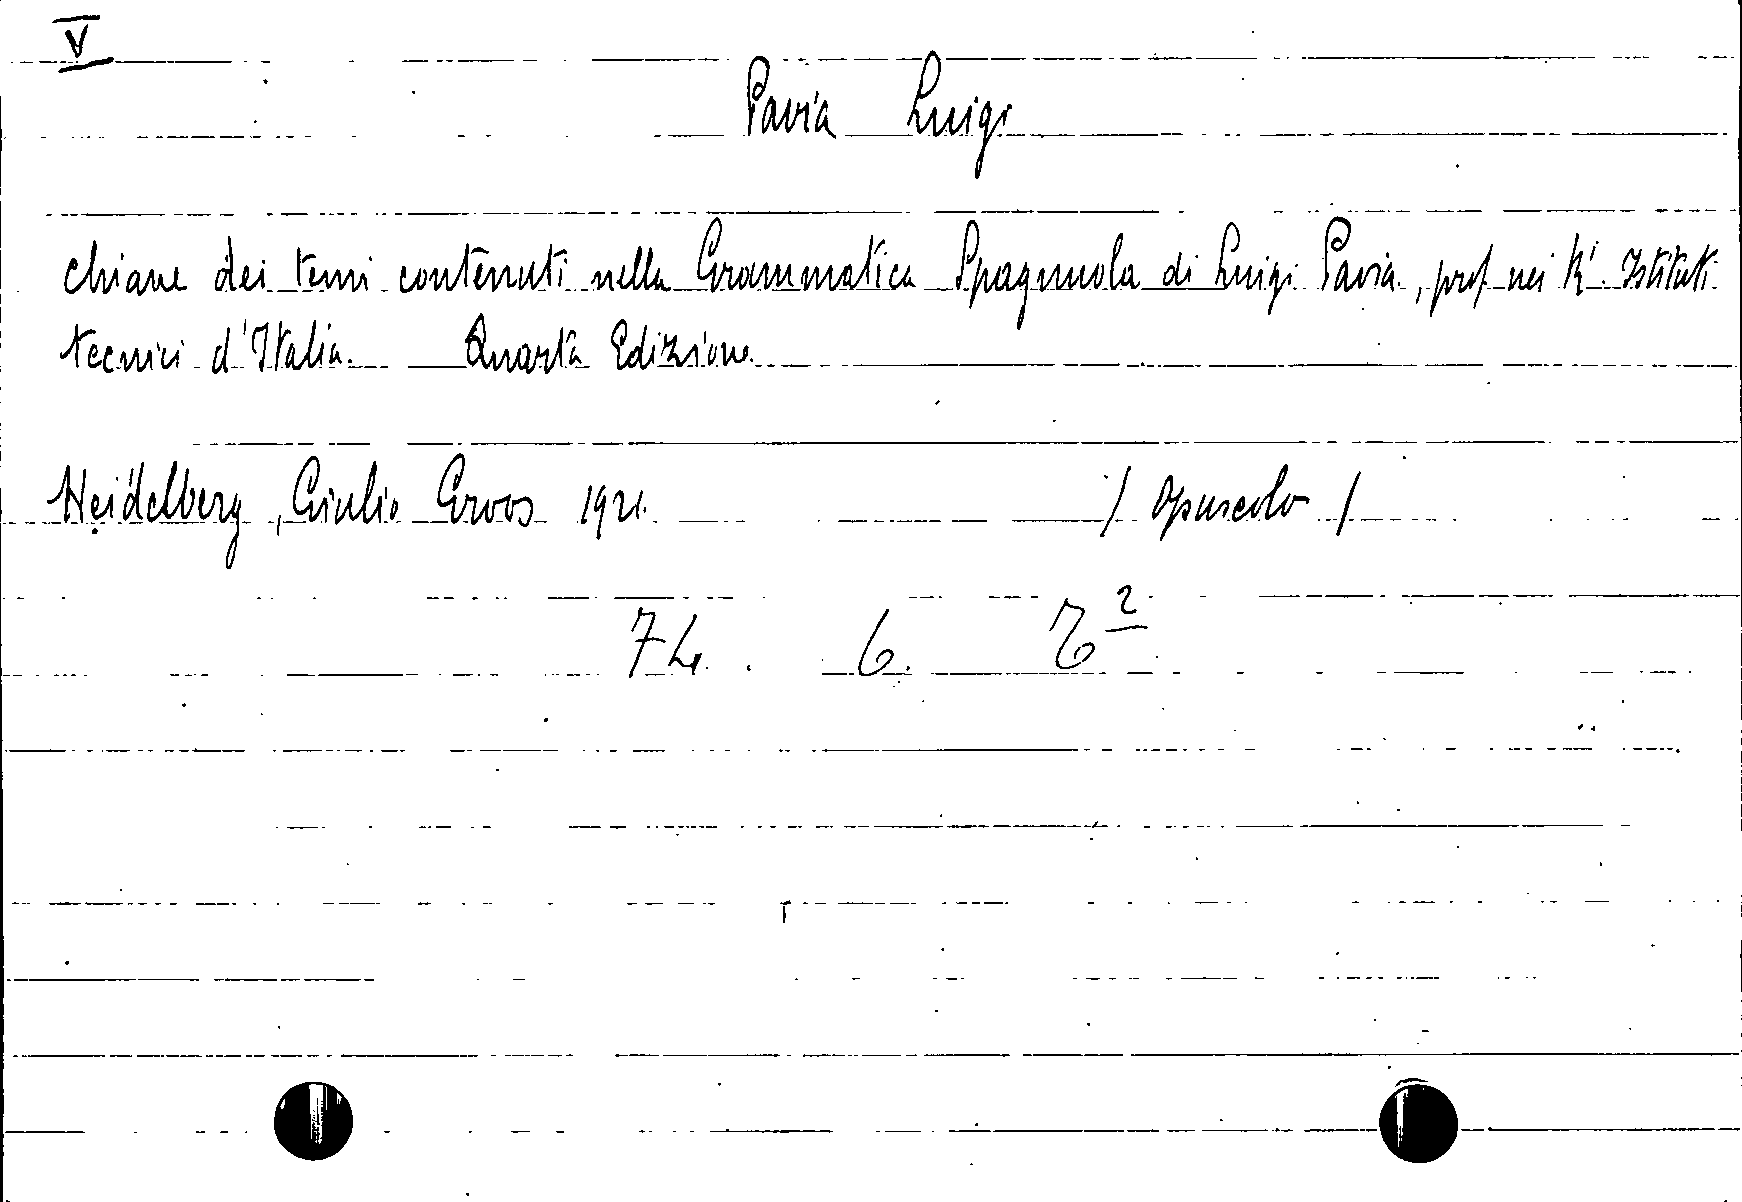 V
Pavia Luigi
Chiave dei temi contenuti nella Grammatica Spagnuola di Luigi Pavia, prof. nei R.i Istituti
tecnici d'Italia. Quarta Edizione.
Heidelberg, Giulio Groos 1921. / Opuscolo /
74. 6.